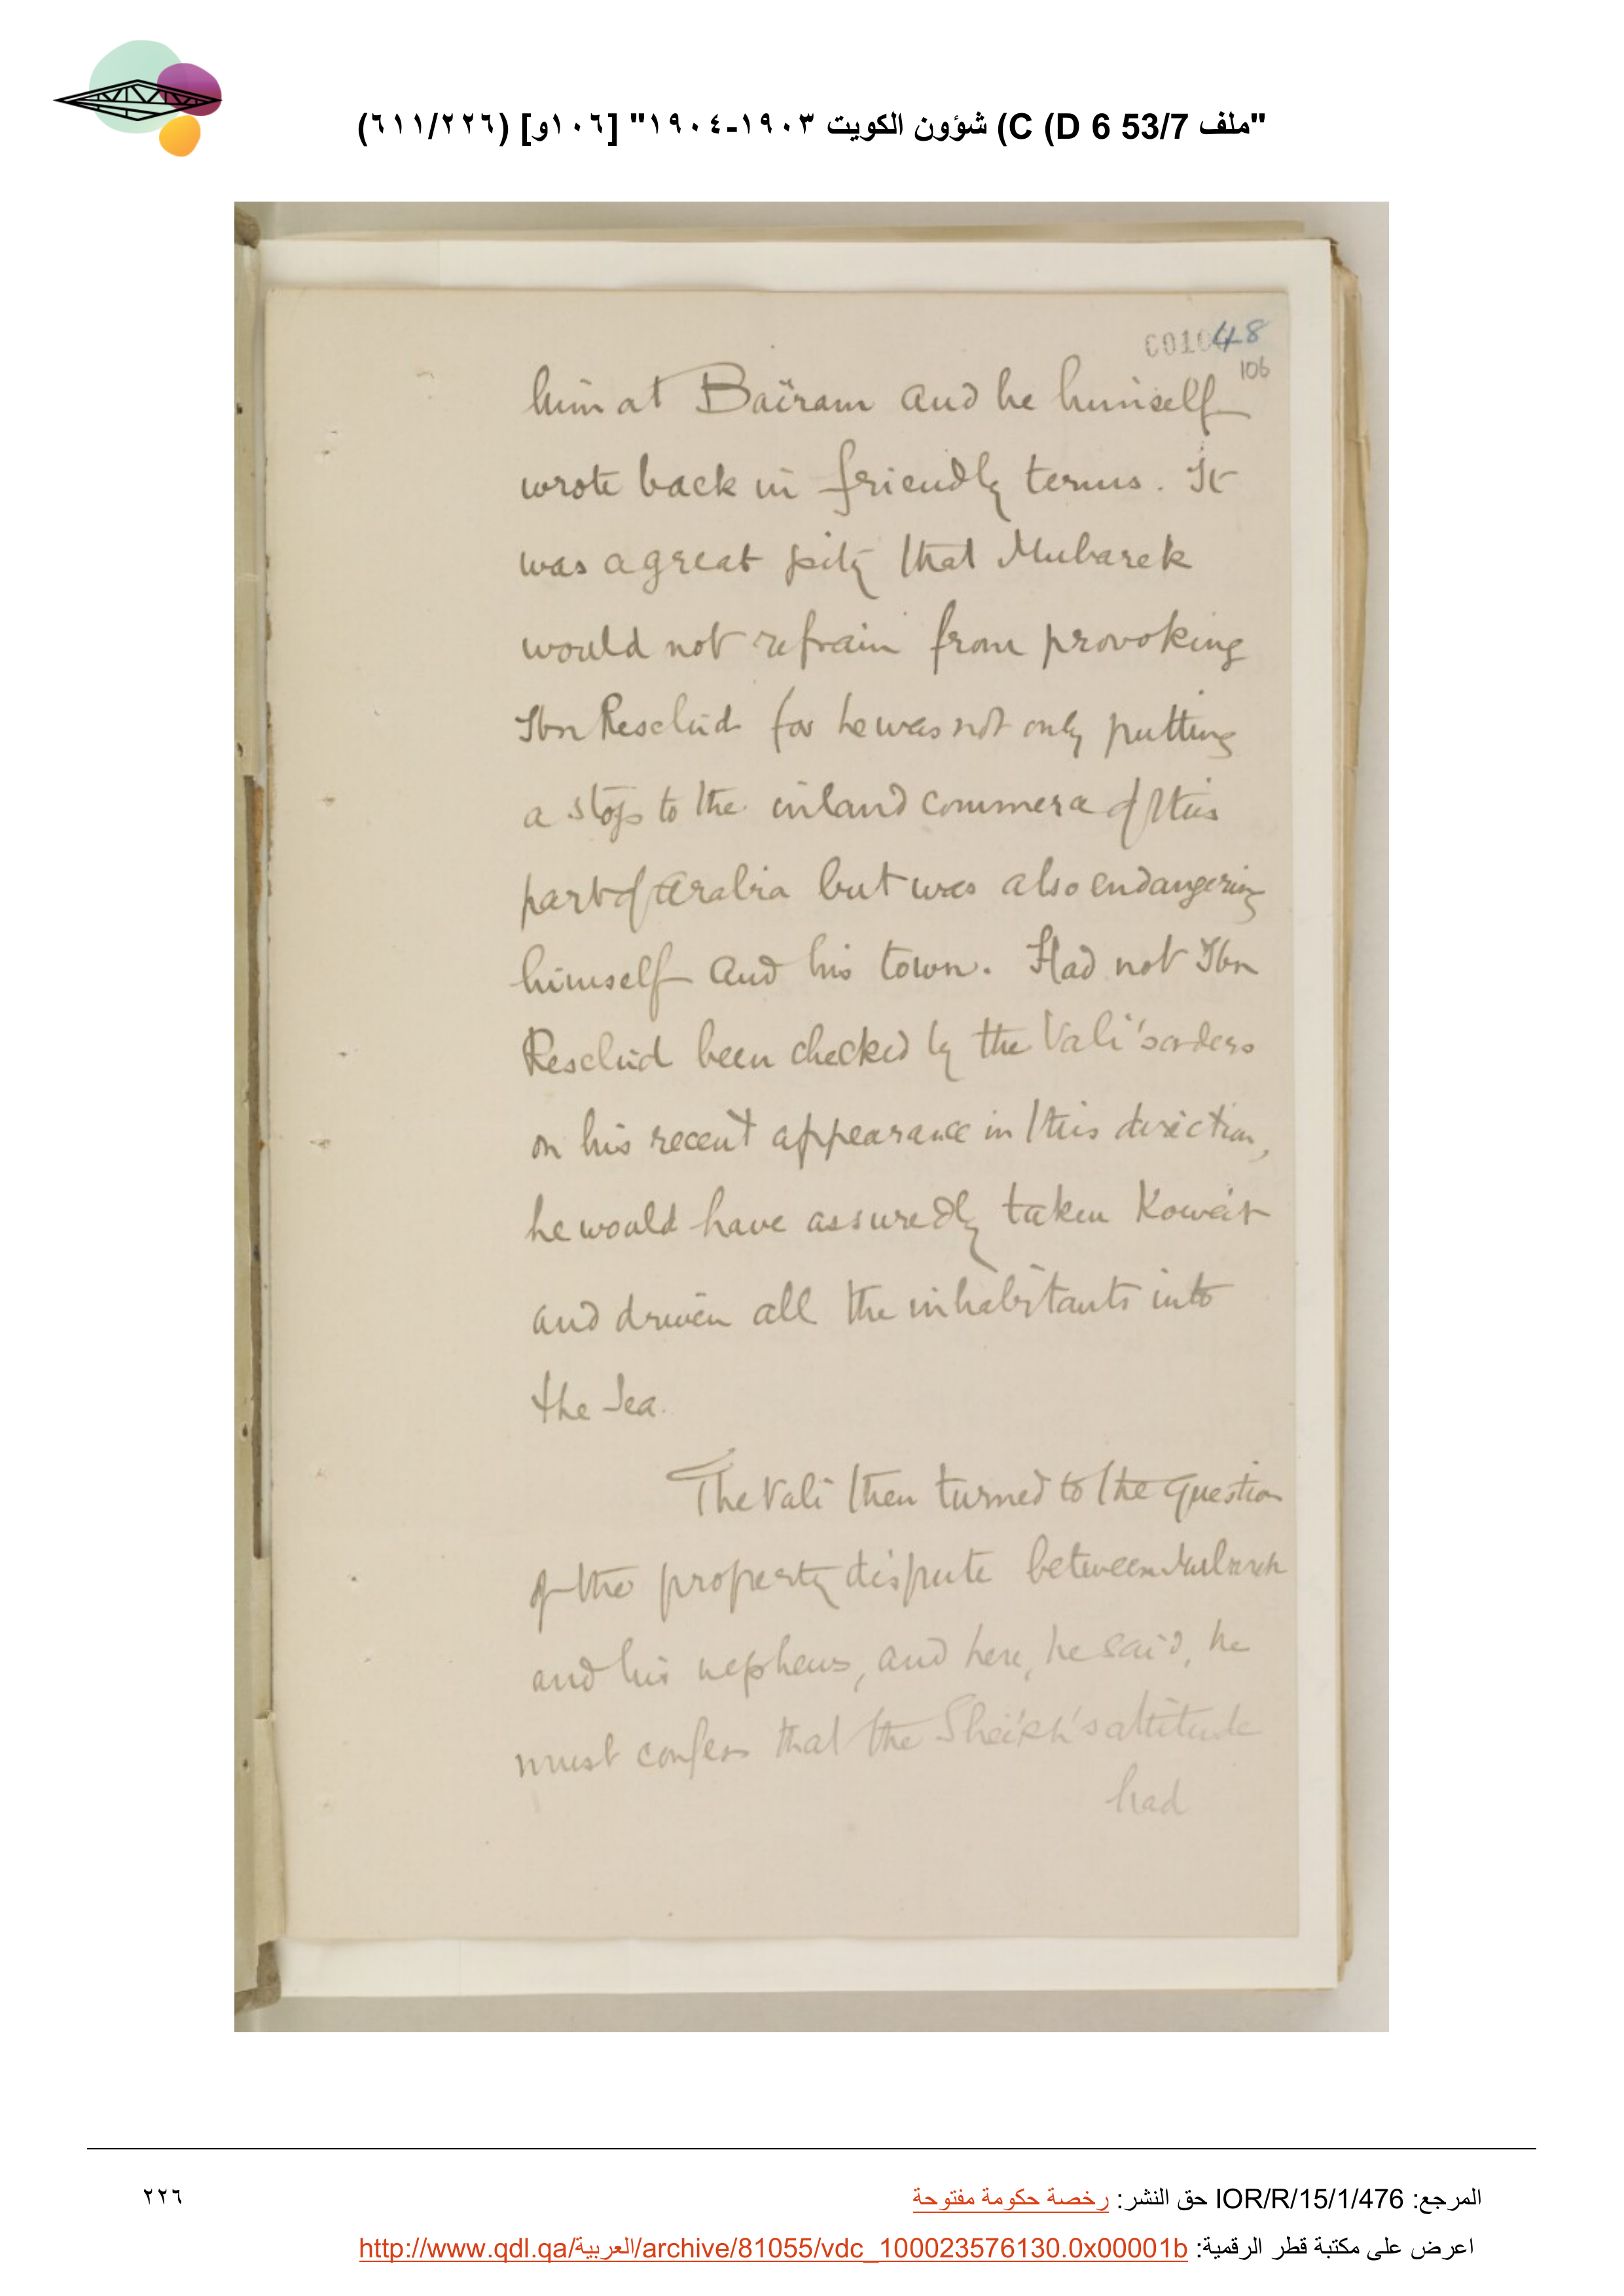 "ملف 53/7 C (D 6) شؤون الكويت ١٩٠٣-١٩٠٤" [١٠٦و] (٦١١/٢٢٦)
48
106
him at Baïram and he himself
wrote back in friendly terms. It
was a great pity that Mubarek
would not refrain from provoking
Ibn Reschid for he was not only putting
a stop to the inland commerce of this
part of Arabia but was also endangering
himself and his town. Had not Ibn
Reschid been checked by the Vali's orders
on his recent appearance in this direction,
he would have assuredly taken Koweit
and driven all the inhabitants into
the Sea.
The Vali then turned to the question
of the property dispute between Mubarek
and his nephews, and here, he said, he
must confess that the Sheikh's attitude
had
المرجع: IOR/R/15/1/476 حق النشر: رخصة حكومة مفتوحة
٢٢٦
اعرض على مكتبة قطر الرقمية: http://www.qdl.qa/العربية/archive/81055/vdc_100023576130.0x00001b